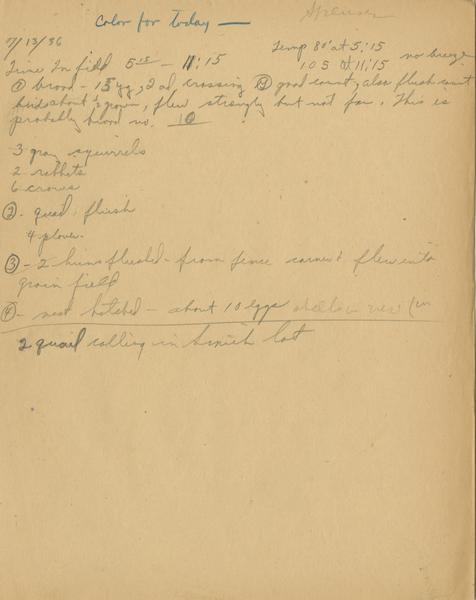 Color for today —
7/13/36
Temp 80° at 5:15
105 at 11:15 no breeze
Time In field 5:15 — 11:15
① brood - 15 yg, 2 ad crossing good count, also flush count
birds about ½ grown, flew strongly but not far. This is
probably brood no. 10
3 gray squirrels
2 rabbits
6 crows
② - quail flush
4 plover
③ - 2 hens flushed - from fence corner & flew into
grain field
④ - nest hatched - about 10 eggs
2 quail calling in lot